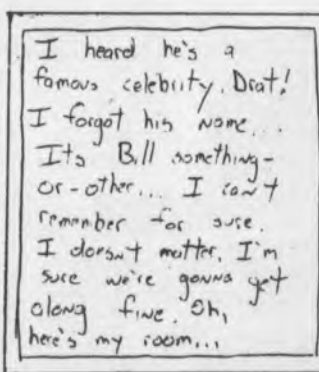 I heard he's a
famous celebrity. Drat!
I forgot his name...
Its Bill something-
or-other... I can't
remember for sure.
I doesn't matter, I'm
sure we're gonna get
along fine. Oh,
here's my room...